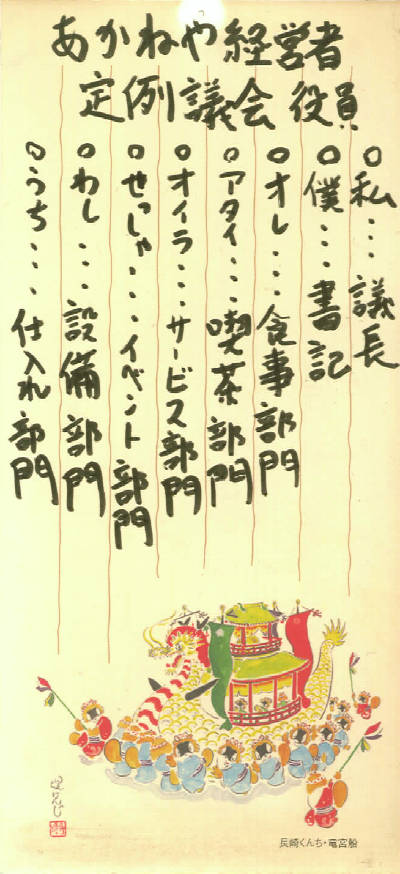 あかねや経営者
定例議会 役員
○私…議長
○僕…書記
○オレ…食事部門
○アタイ…喫茶部門
○オイラ…サービス部門
○せっしゃ…イベント部門
○わし…設備部門
○うち…仕入れ部門
長崎くんち・竜宮船